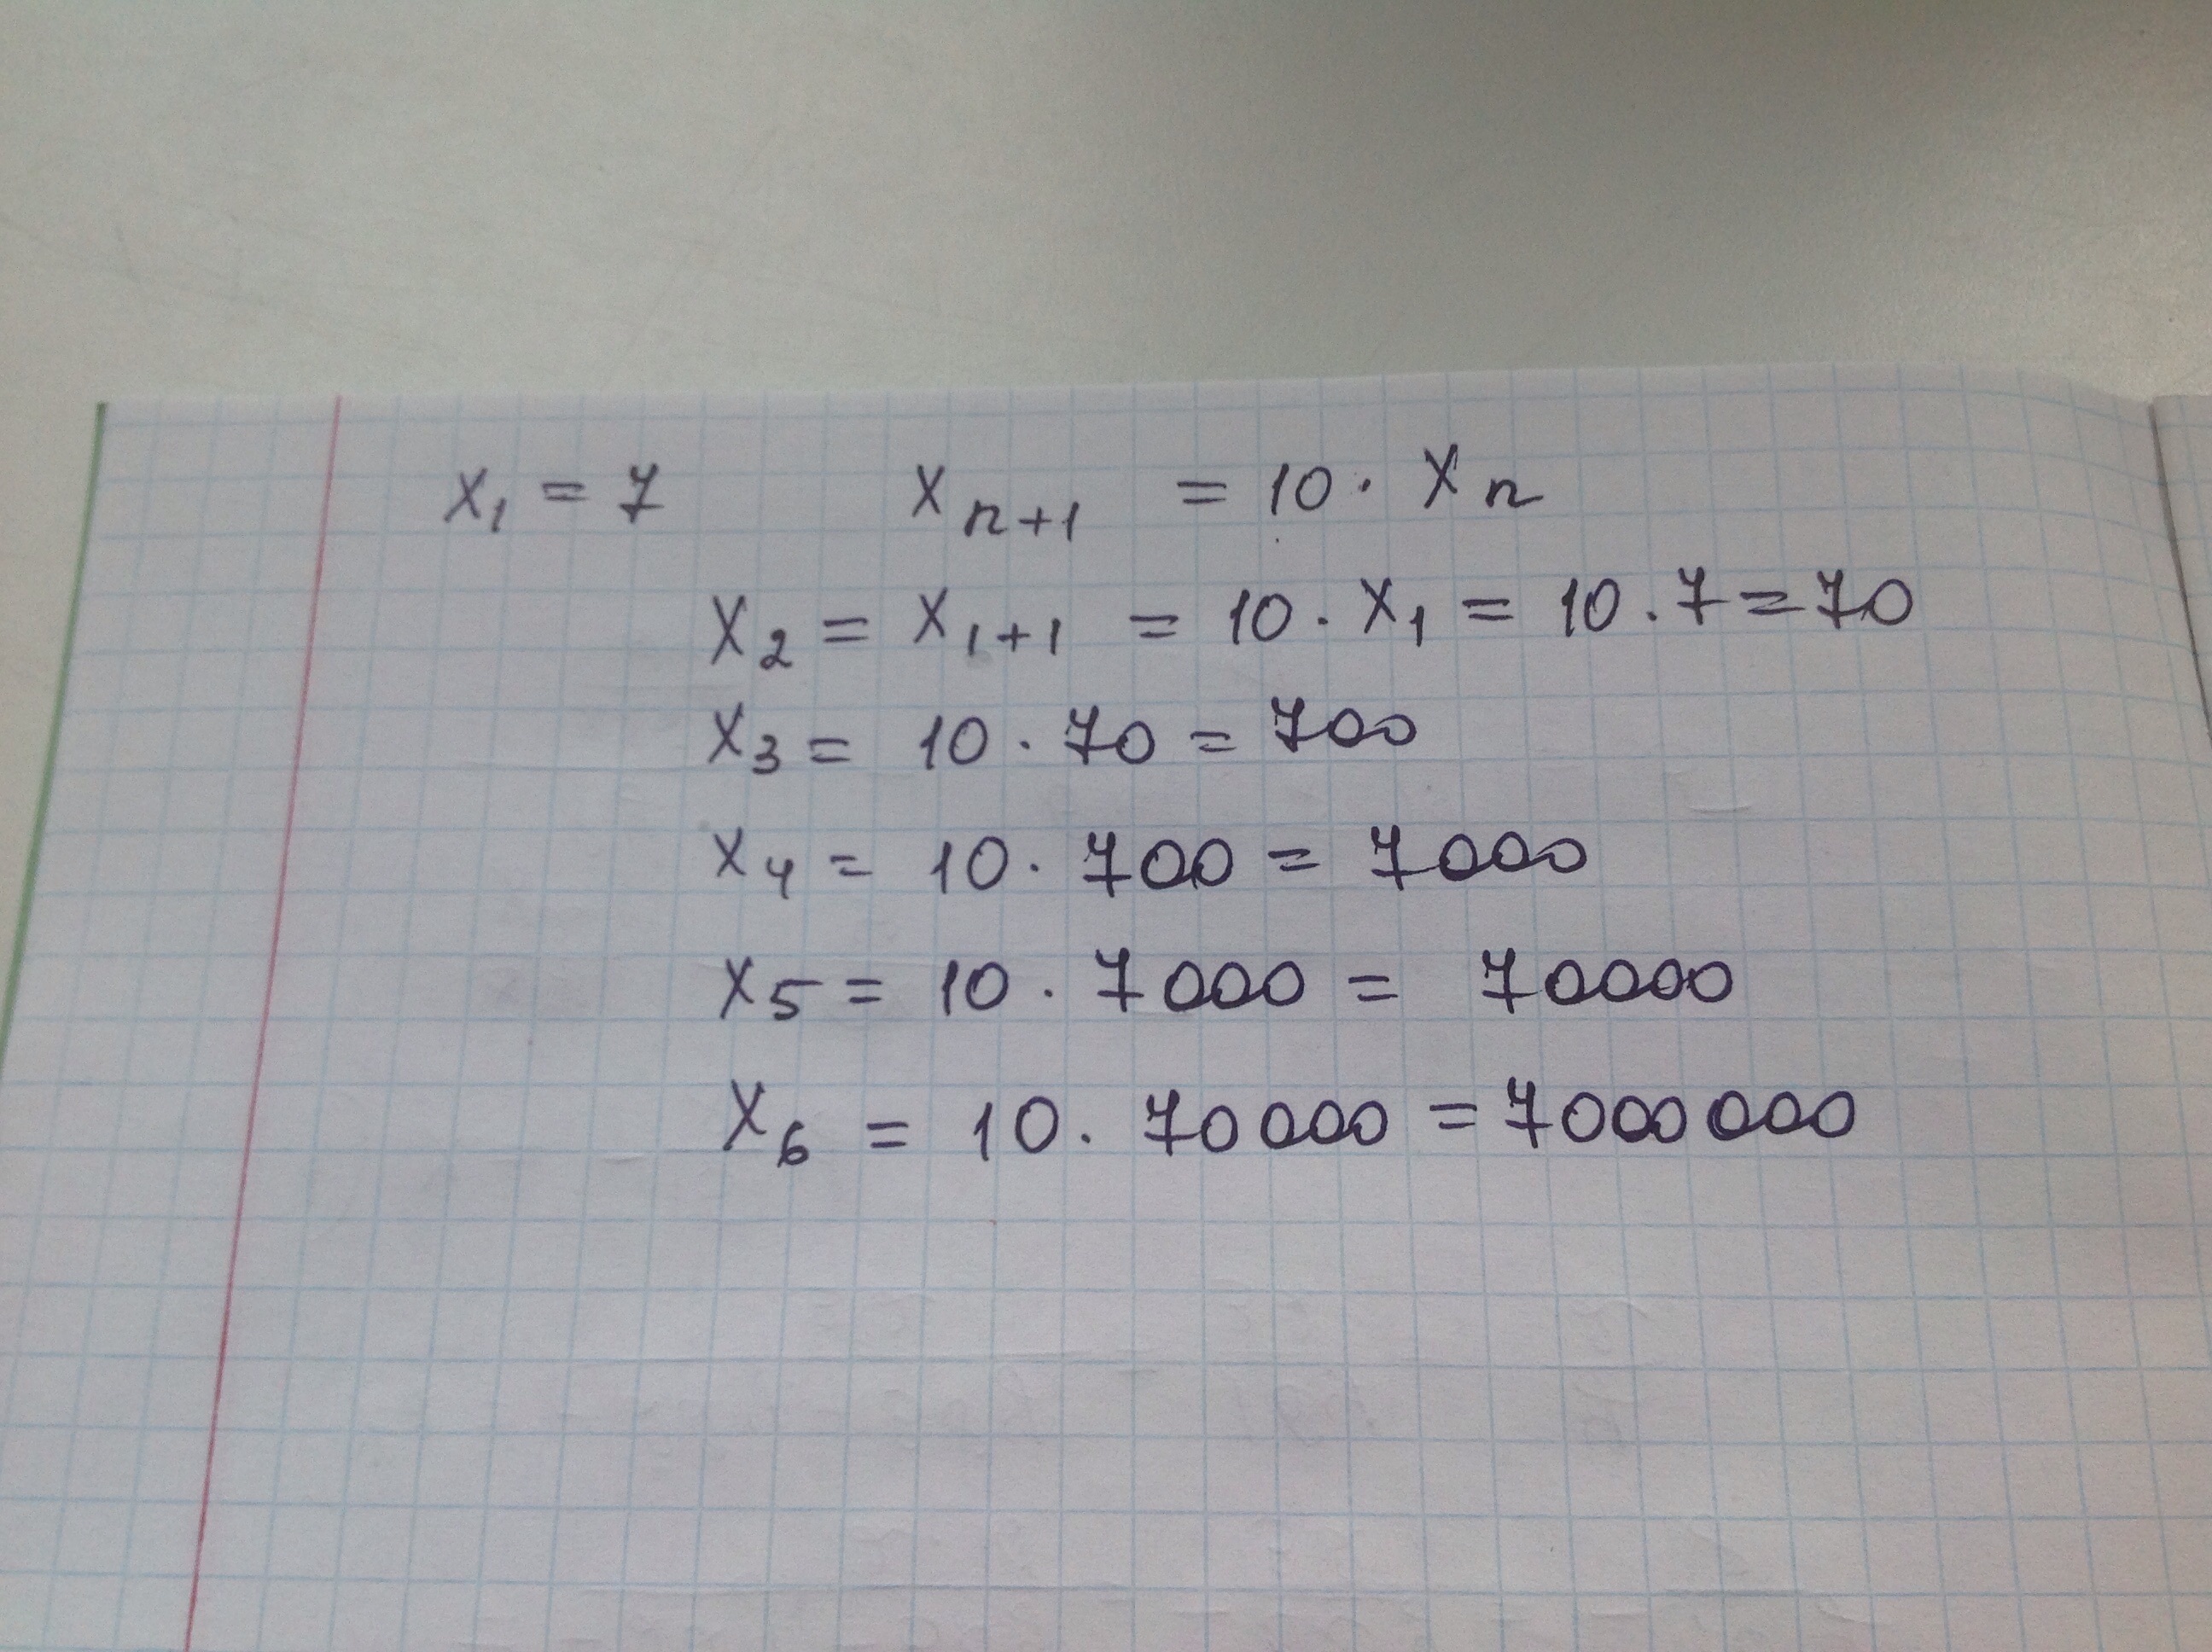 x₁ = 7 xₙ₊₁ = 10 · xₙ
x₂ = x₁₊₁ = 10 · x₁ = 10 . 7 = 70
x₃ = 10 · 70 = 700
x₄ = 10 · 700 = 7000
x₅ = 10 · 7000 = 70000
x₆ = 10 · 70000 = 7000000